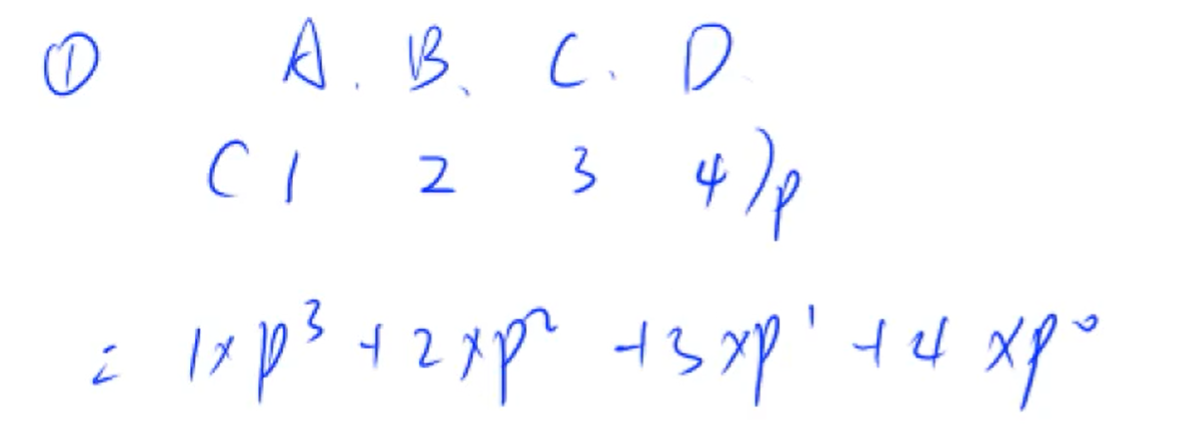 ① A. B、 C. D.
( 1 2 3 4 )p
= 1×p³ + 2×p² + 3×p¹ + 4×p⁰